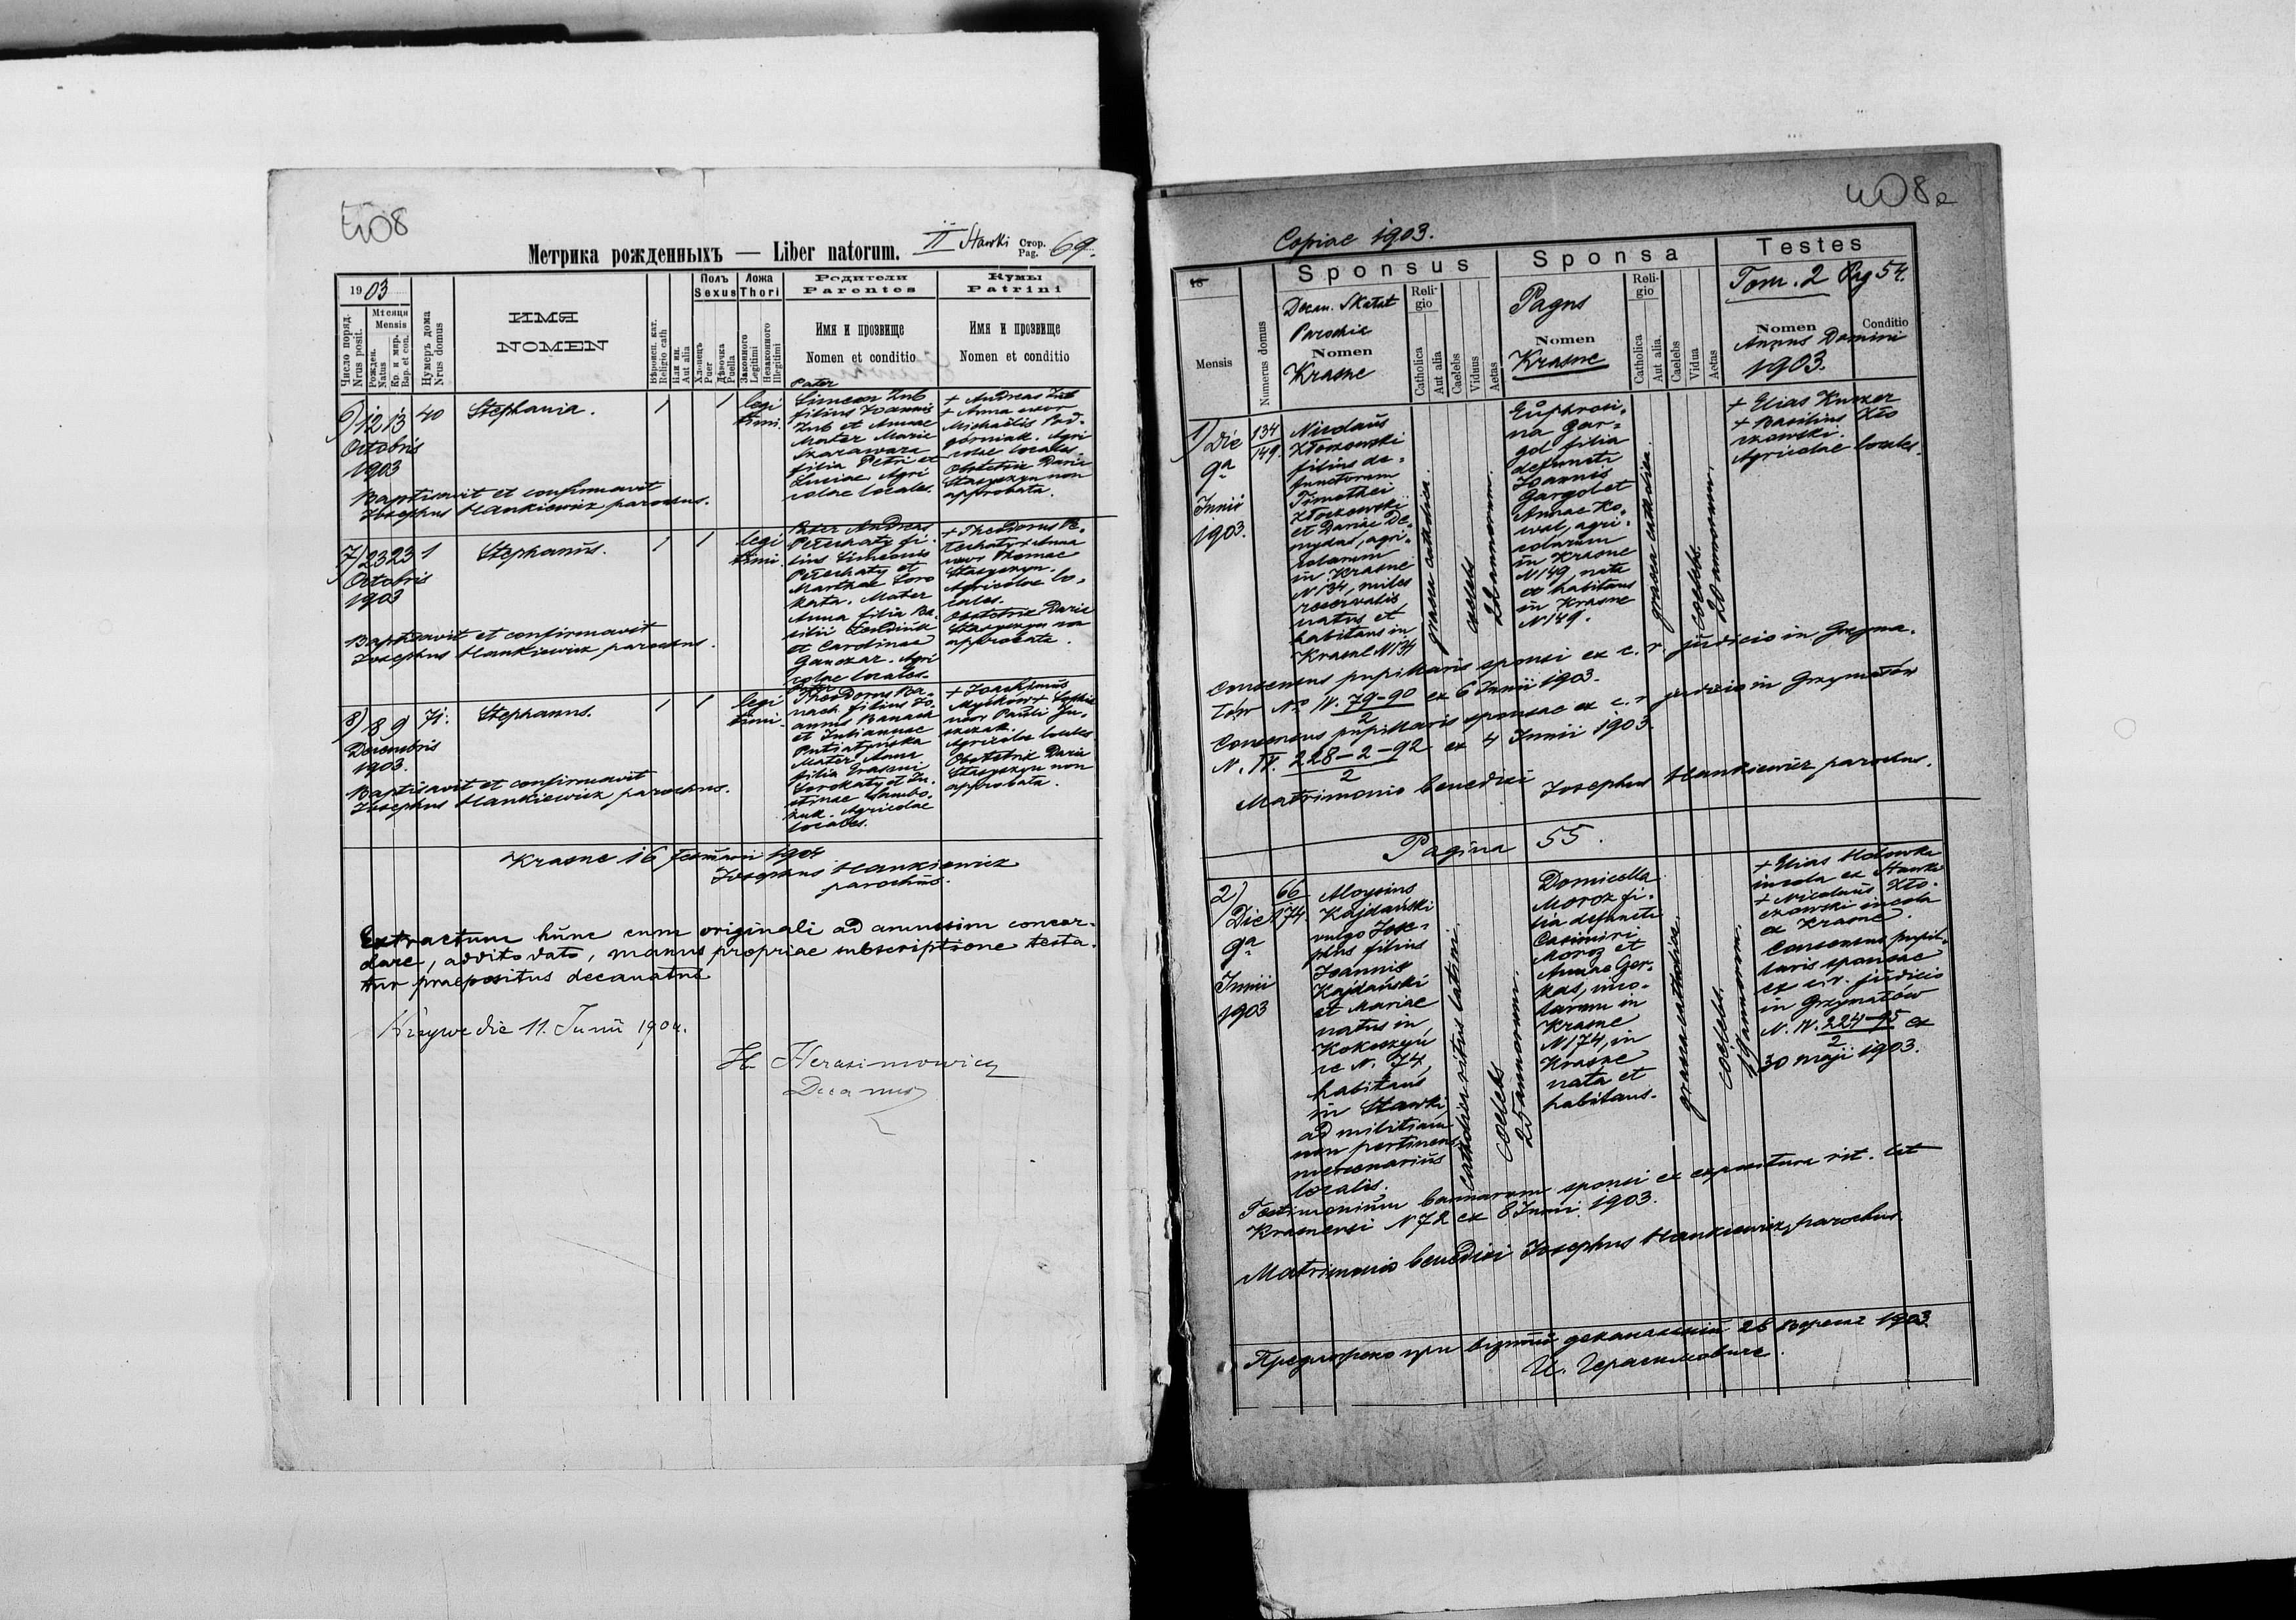 408
Метрика рожденныхъ — Liber natorum. II Stawki Стор. Pag. 69.
1903
Число поряд.
Nrus posit.
Мѣсяця
Mensis
Рожден.
Natus
Кр. и мѵр.
Bap. et con.
Нумеръ дома
Nrus domus
ИМЯ
NOMEN
Вѣроисп. кат.
Religio cath
Или ин.
Aut alia
Полъ
Sexus
Хлопецъ
Puer
Дѣвочка
Puella
Ложа
Thori
Законного
Legitimi
Незаконного
Illegitimi
Родители
Parentes
Имя и прозвище
Nomen et conditio
Кумы
Patrini
Имя и прозвище
Nomen et conditio
6) 12 13 40 Stephania. 1 1 legi
timi.
Octobris
1903
Baptisavit et confirmavit
Josephus Hankiewicz parochus.
Pater
Simeon Zub
filius Joannis
Zub et Annae
Mater Maria
Szarawara
filia Petri et
Luciae. Agri
colae locales.
+ Andreas Zub
+ Anna uxor
Michaëlis Pod-
górniak. Agri
colae locales.
Obstetrix Daria
Stasyszyn non
approbata.
7) 23 23 1 Stephanus. 1 1 legi
timi.
Octobris
1903
Baptisavit et confirmavit
Josephus Hankiewicz parochus.
Pater Andreas
Petechaty fi-
lius Simeonis
Petechaty et
Marthae Soro
kata. Mater
Anna filia Ba-
silii
et Carolinae
Ganczar. Agri
colae locales.
+ Theodorus Pe-
techaty + Anna
uxor Thomae
Stasyszyn.
Agricolae lo-
cales.
Obstetrix Daria
Stasyszyn non
approbata.
8) 8 9 71. Stephanus. 1 1 legi
timi.
Decembris
1903.
Baptisavit et confirmavit
Josephus Hankiewicz parochus.
Pater
Theodorus Ba-
nach filius Jo-
annis Banach
et Juliannae
Putiatyńska
Mater Anna
filia Erasmi
Sorokaty et Ju-
stinae
Agricolae
locales.
+ Joachimus
Myśków +
uxor Pauli
Agricolae locales
Obstetrix Daria
Stasyszyn non
approbata.
Krasne 16 Februarii 1904
Josephus Hankiewicz
parochus.
Extractum hunc cum originali ad amussim concor-
dare, addito dato, manus propriae subscriptione testa-
tur praepositus decanatus
Krzywe die 11. Junii 1904.
H. Herasimowicz
Decanus
408a
Copiae 1903.
18
Mensis
Numerus domus
Sponsus
Decan. Skałat
Parochia
Nomen
Krasne
Reli-
gio
Catholica
Aut alia
Caelebs
Viduus
Aetas
Sponsa
Pagus
Nomen
Krasne
Reli-
gio
Catholica
Aut alia.
Caelebs
Vidua
Aetas
Testes
Tom. 2 Pag 54.
Nomen
Conditio
Annus Domini
1903.
1) Die
9a
Junii
1903.
134
149.
Nicolaus
Złoczowski
filius de-
functorum
Timothei
Złoczowski
et Dariae De-
mydas, agri-
colarum
in Krasne
N 134, miles
reservalis
natus et
habitans in
Krasne N 134
graeca catholica.
coelebs
annorum.
Euphrosi-
na Gar-
gol filia
defuncti
Joannis
Gargol et
Annae Ko-
wal, agri-
colarum
in Krasne
N 149, nata
et habitans
in Krasne
N 149.
graeca catholica.
coelebs.
20 annorum.
+ Elias Kuszer
+ Basilius Zło
czowski.
Agricolae locales.
Consensus pupillaris sponsi ex c. r. judicio in Grzyma-
łów No IV. 79-90/2 ex 6 Junii 1903.
Consensus pupillaris sponsae ex c. r judicio in Grzymałów
N. IV. 228-2-92/2 ex 4 Junii 1903.
Matrimonio benedixi Josephus Hankiewicz parochus.
Pagina 55.
2)
Die
9a
Junii
1903
66
174.
Aloysius
Kajdański
vulgo Jose-
phus filius
Joannis
Kajdański
et Mariae
natus in
Kokoszyń
ce N. 74,
habitans
in Stawki,
ad militiam
non pertinens
mercenarius
localis.
catholica ritus latini.
coelebs
25 annorum.
Domicella
Moroz fi-
lia defuncti
Casimiri
Moroz et
Annae Ger-
kas, inco-
larum in
Krasne
N 174, in
Krasne
nata et
habitans.
graeca catholica.
coelebs.
19 annorum.
+ Elias Holowka
incola ex Stawki
+ Nicolaus Zło-
czowski incola
ex Krasne.
Consensus pupil-
laris sponsae
ex c. r. judicio
in Grzymałów
N. IV. 224-95/2 ex
30 maji 1903.
Testimonium bannorum sponsi ex expositura rit. lat
Krasnensi N 72 ex 8 Junii 1903.
Matrimonio benedixi Josephus Hankiewicz, parochus.
Предложено при визитѣ деканальной 26 вересня 1903.
И. Герасимовичъ.